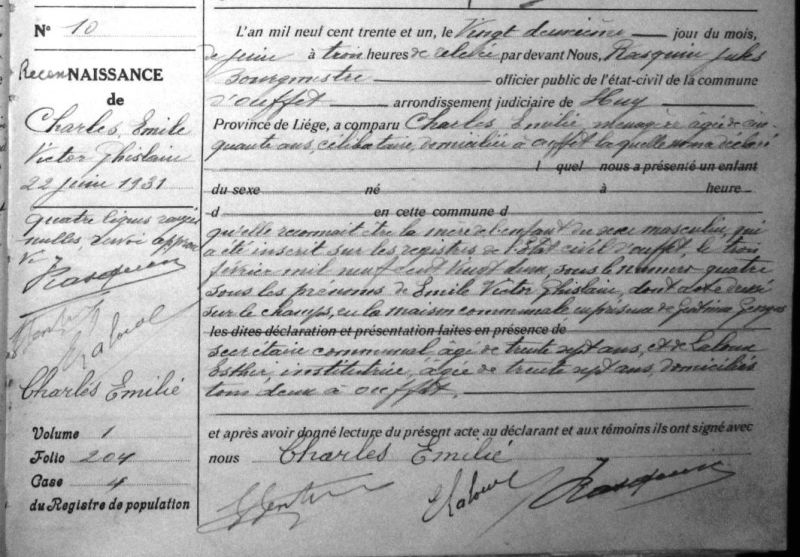 N° 10
Recon NAISSANCE
de
Charles, Emile
Victor Ghislain
22 juin 1931
quatre lignes rayées
nulles, renvoi approuvé
Rasquin
Charles Emilié
Volume 1
Folio 204
Case 4
du Registre de population
L'an mil neuf cent trente et un, le Vingt deuxième jour du mois,
de juin à trois heures de relevée par devant Nous, Rasquin Jules
bourgmestre officier public de l'état-civil de la commune
d'ouffet, arrondissement judiciaire de Huy
Province de Liége, a comparu Charles, Emilie, ménagère âgée de cin-
quante ans, célibataire, domiciliée à ouffet laquelle nous a déclaré
l quel nous a présenté un enfant
du sexe né à heure
d en cette commune d
qu'elle reconnait être la mère de l'enfant du sexe masculin, qui
a été inscrit sur les registres de l'Etat civil d'ouffet, le trois
février mil neuf cent vingt deux, sous le numéro quatre
sous les prénoms de Emile Victor Ghislain, dont acte dressé
sur le champs, en la maison communale en présence de Georges
les dites déclaration et présentation faites en présence de
secrétaire communal, âgé de trente sept ans, et de Laloux
Esther, institutrice, âgée de trente sept ans, domiciliés
tous deux à ouffet.
et après avoir donné lecture du présent acte au déclarant et aux témoins ils ont signé avec
nous Charles Emilié
Elaloux Rasquin